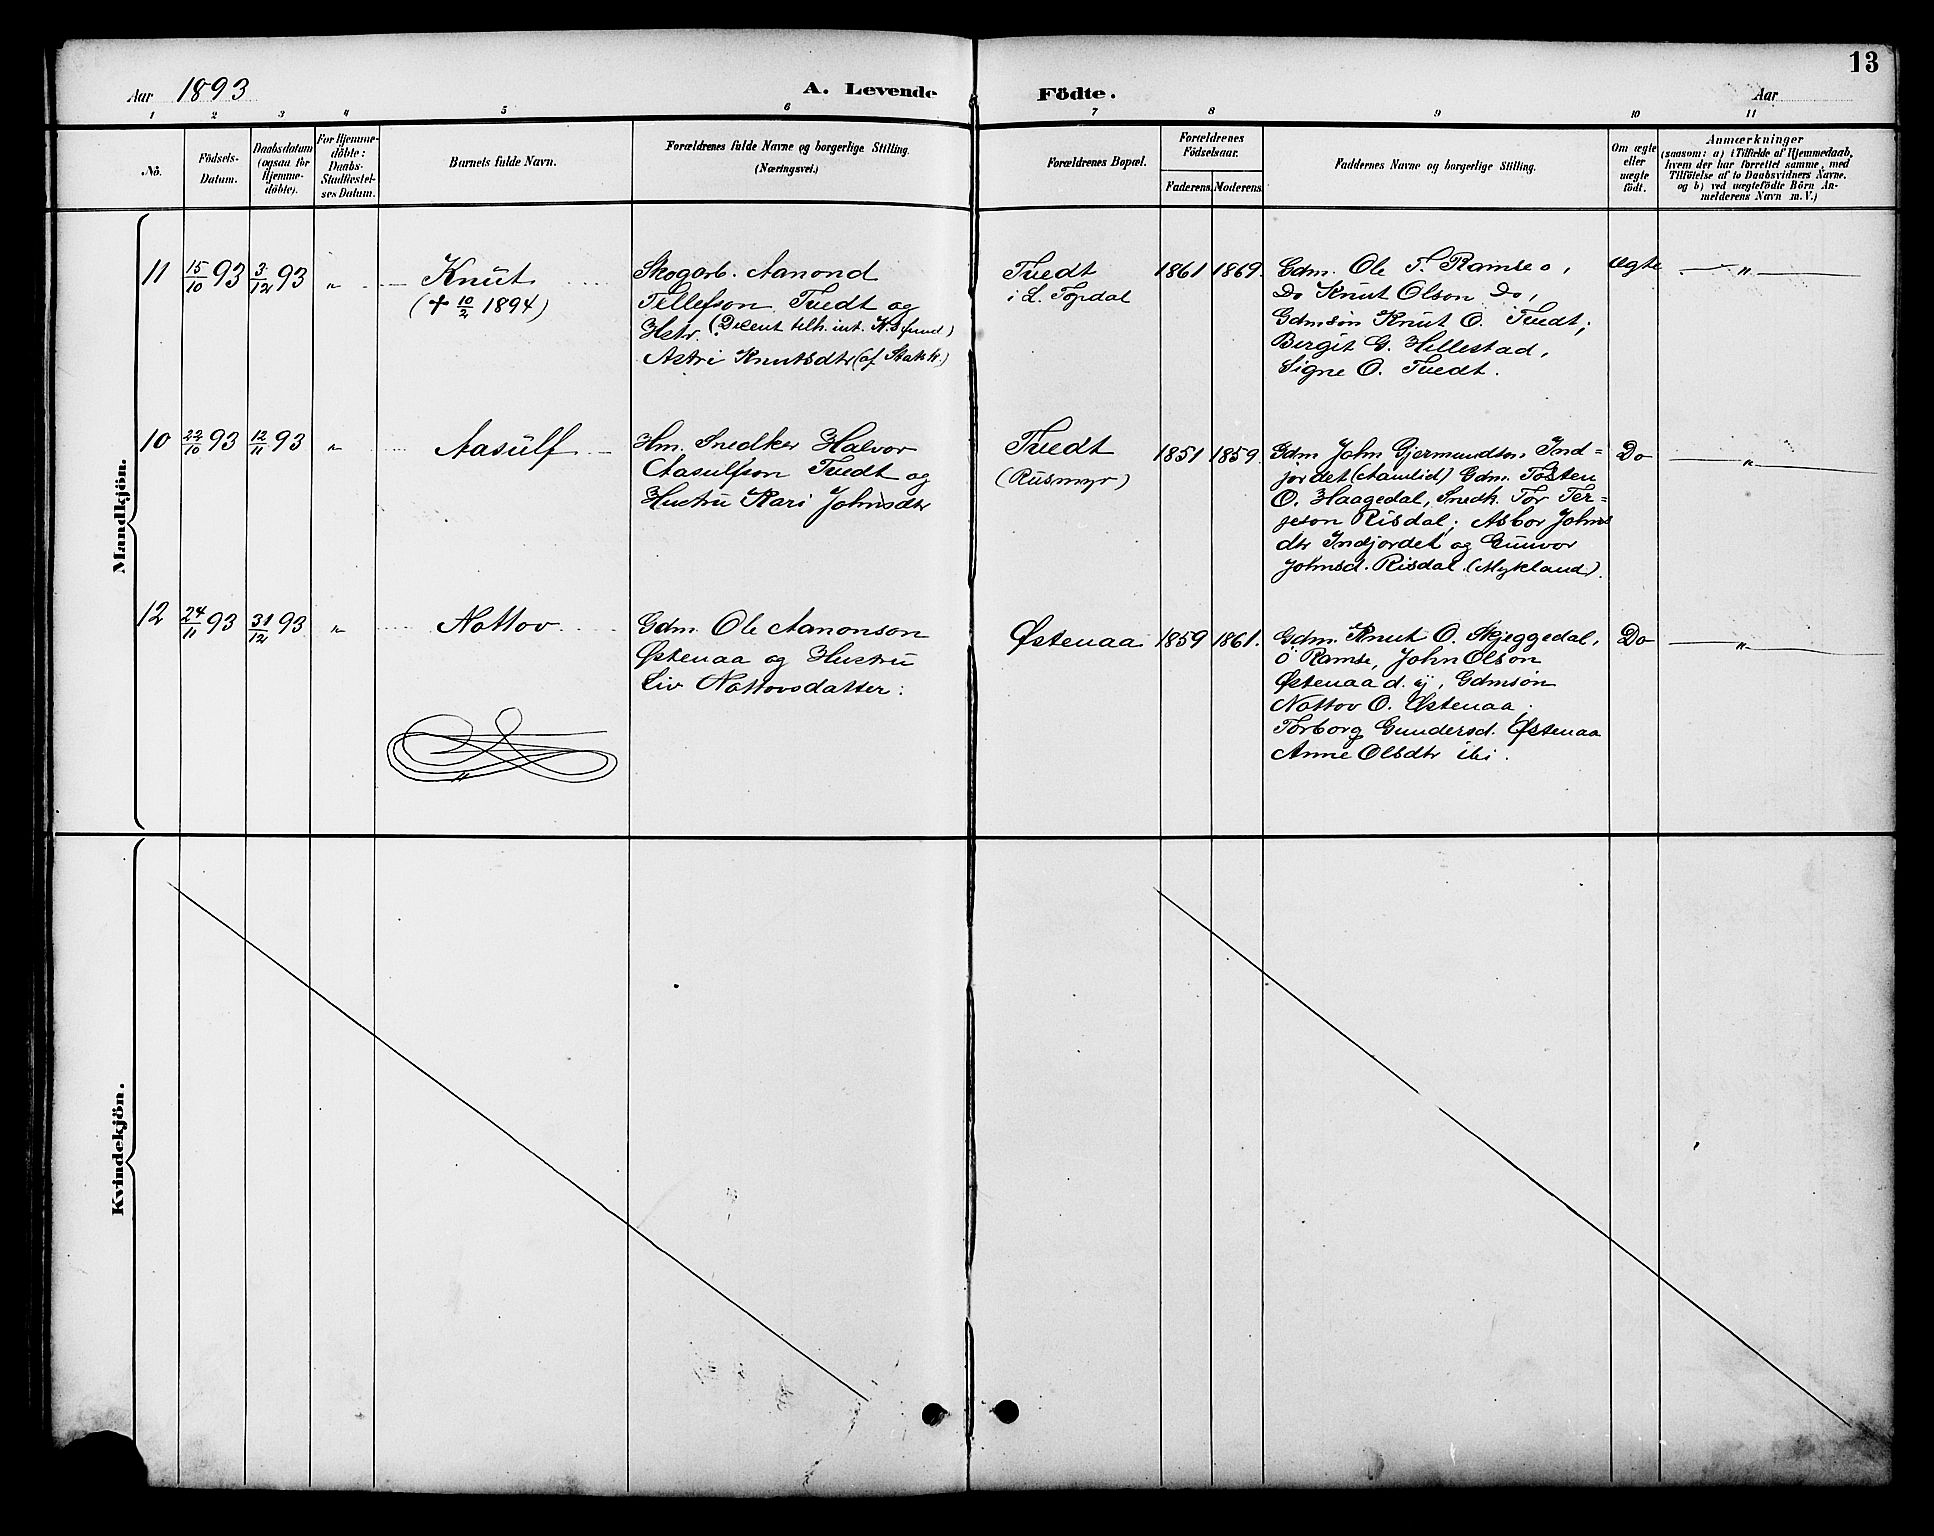 13
Aar 1893 A. Levende Födte. Aar
1 2 3 4 5 6 7 8 9 10 11
No. Födsels-Datum. Daabsdatum (ogsaa for Hjemme-döbte). For Hjemme-döbte: Daabs-Stadfæstel-ses Datum. Barnets fulde Navn. Forældrenes fulde Navne og borgerlige Stilling. (Næringsvei.) Forældrenes Bopæl. Forældrenes Födselsaar. Faderens. Moderens. Faddernes Navne og borgerlige Stilling. Om ægte eller uægte födt. Anmærkninger (saasom: a) i Tilfælde af Hjemmedaab, hvem der har forrettet samme, med Tilföielse af to Daabsvidners Navne. og b) ved uægtefödte Börn An-melderens Navn m.V.)
Mandkjön.
11 15/10 93 3/12 93 " Knut
(✝ 10/2 1894)
Skogarb. Aanond
Tellefson Tvedt og
Hstr. (Decent tilh. int. K.Sfund)
Astri Knutsdtr (af Statsk.)
Tvedt
i L. Topdal
1861 1869.
Gdm. Ole T. Ramse o,
Do Knut Olson Do,
Gdmsøn Knut O. Tvedt;
Birgit G. Hillestad,
Signe O. Tvedt.
Ægte "
10 22/10 93 12/11 93 " Aasulf
Hm. Snedker Halvor
Aasulfson Tvedt og
Hustru Kari Johnsdtr
Tvedt
(Rusmyr)
1851 1859.
Gdm John Gjermundson Ind-
jordet (Aamlid) Gdm. Tosten
O. Haagedal, Snedk. Tor Ter-
jeson Risdal; Asbor Johns
dtr Indjordet og Gunvor
Johnsd. Risdal (Mykland).
Do "
12 24/11 93 31/12 93 " Nottov
Gdm. Ole Aanonson
Østenaa og Hustru
Liv Nottovsdatter:
Østenaa 1859 1861.
Gdm. Knut O. Skjeggedal,
O Ramse, John Olson
Østenaa d. y, Gdmsøn
Nottov O. Østenaa;
Torborg Gundersd. Østenaa
Anne Olsdtr ibi.
Do "
"
Kvindekjön.